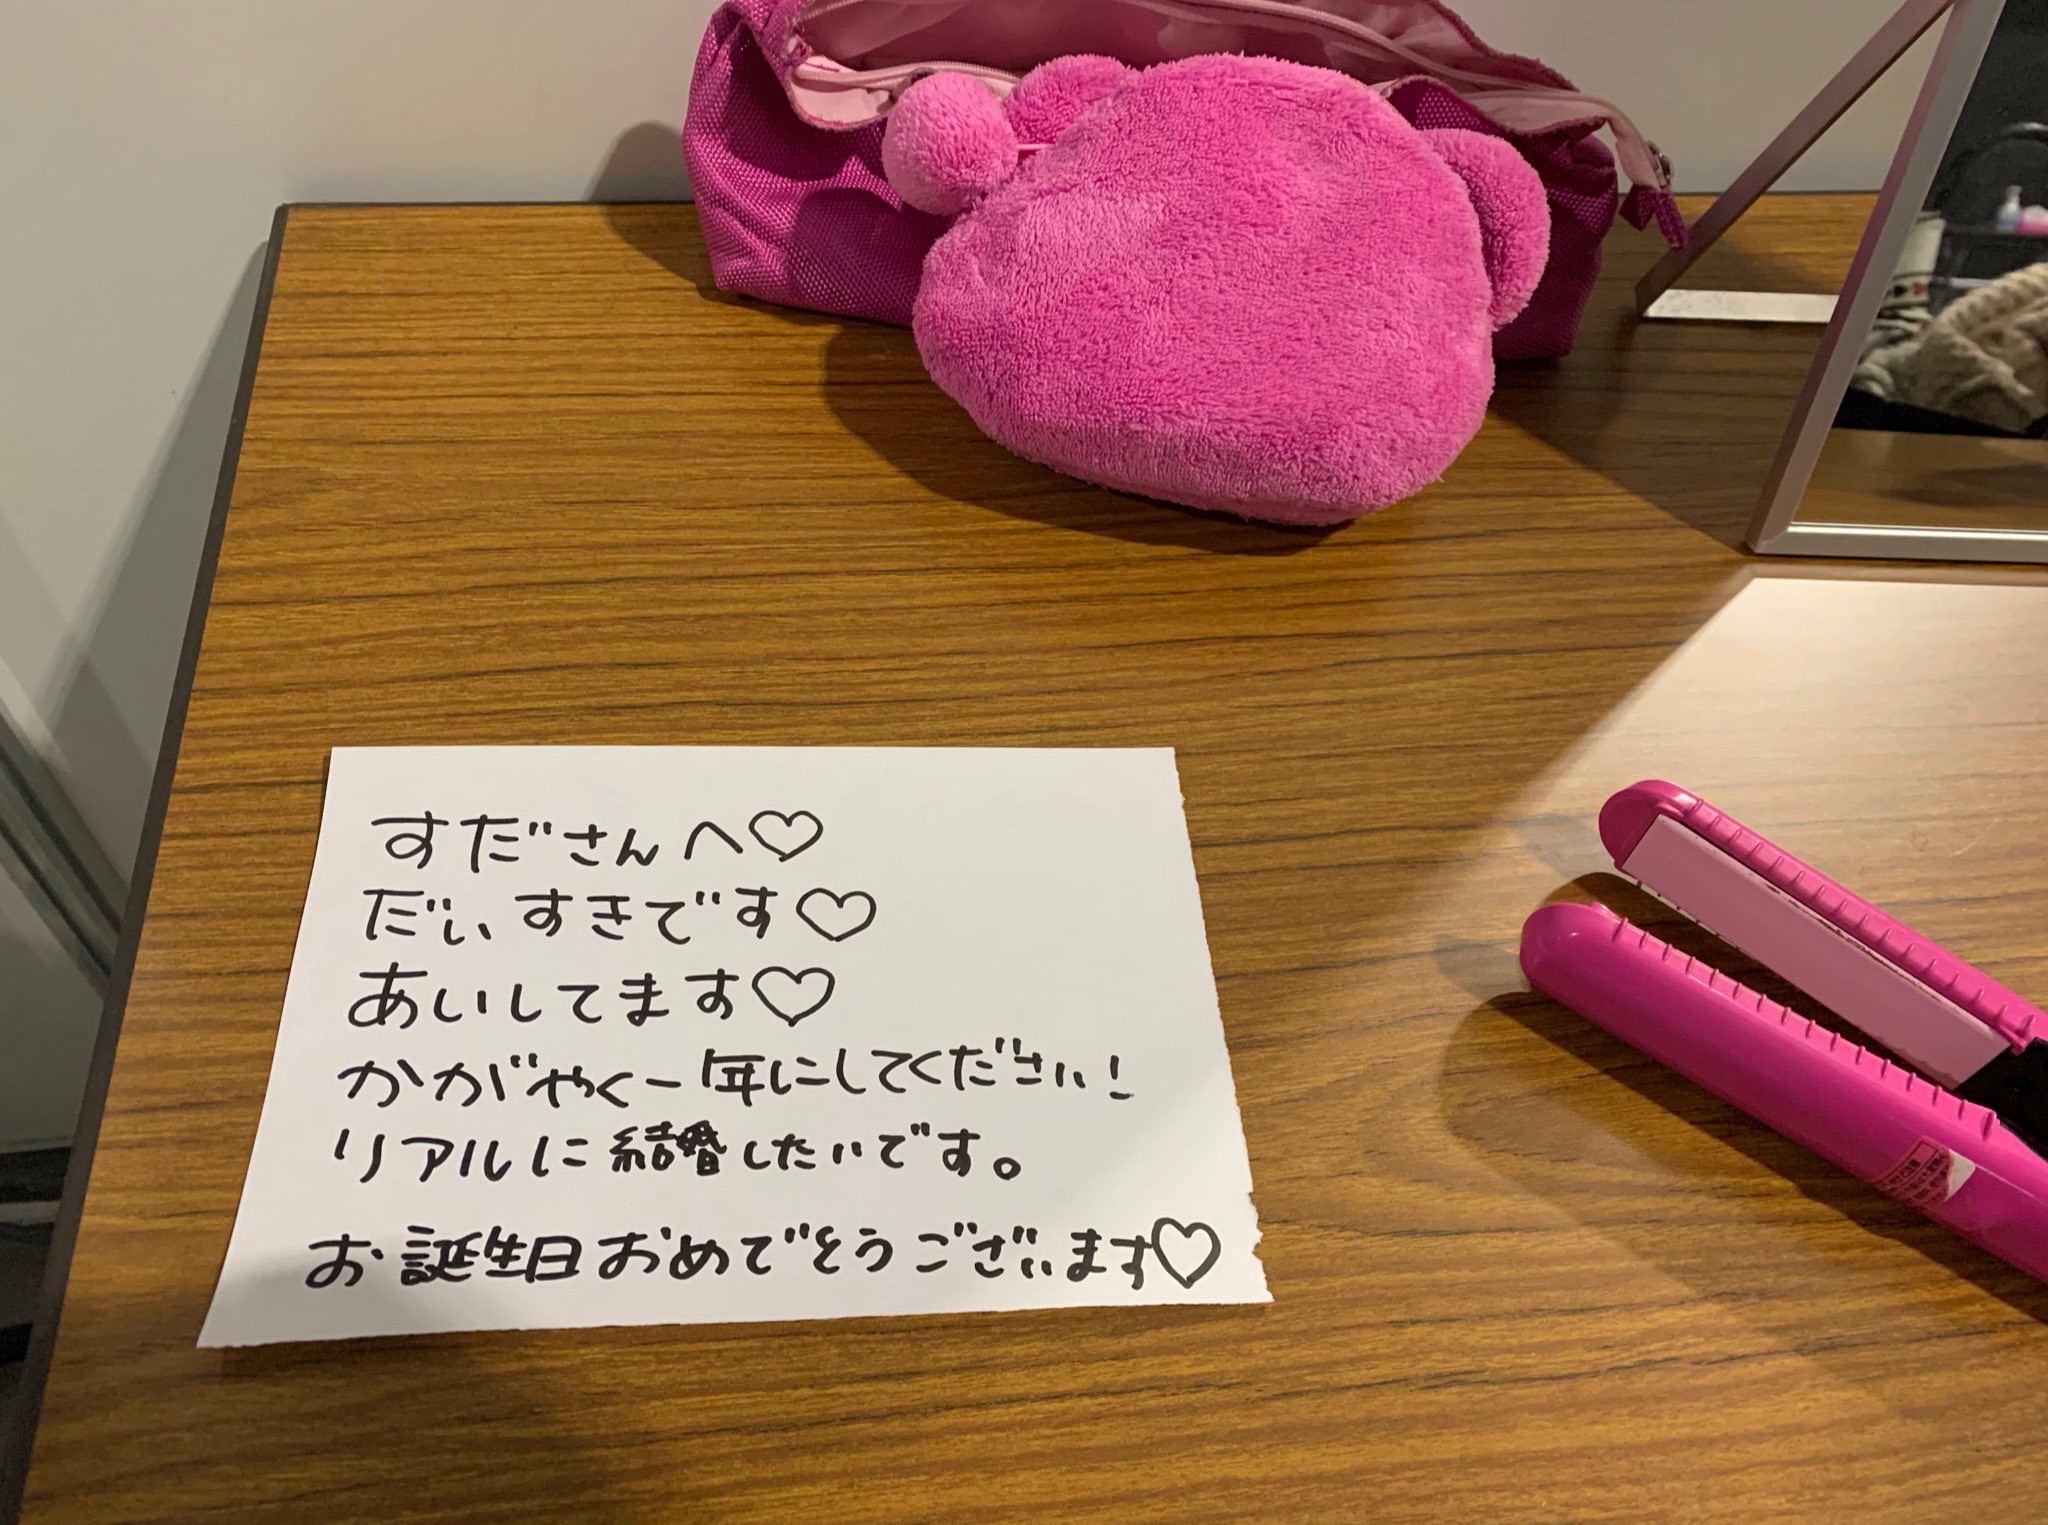 すださんへ♡
だいすきです♡
あいしてます♡
かがやく一年にしてください!
リアルに結婚したいです。
お誕生日おめでとうございます♡